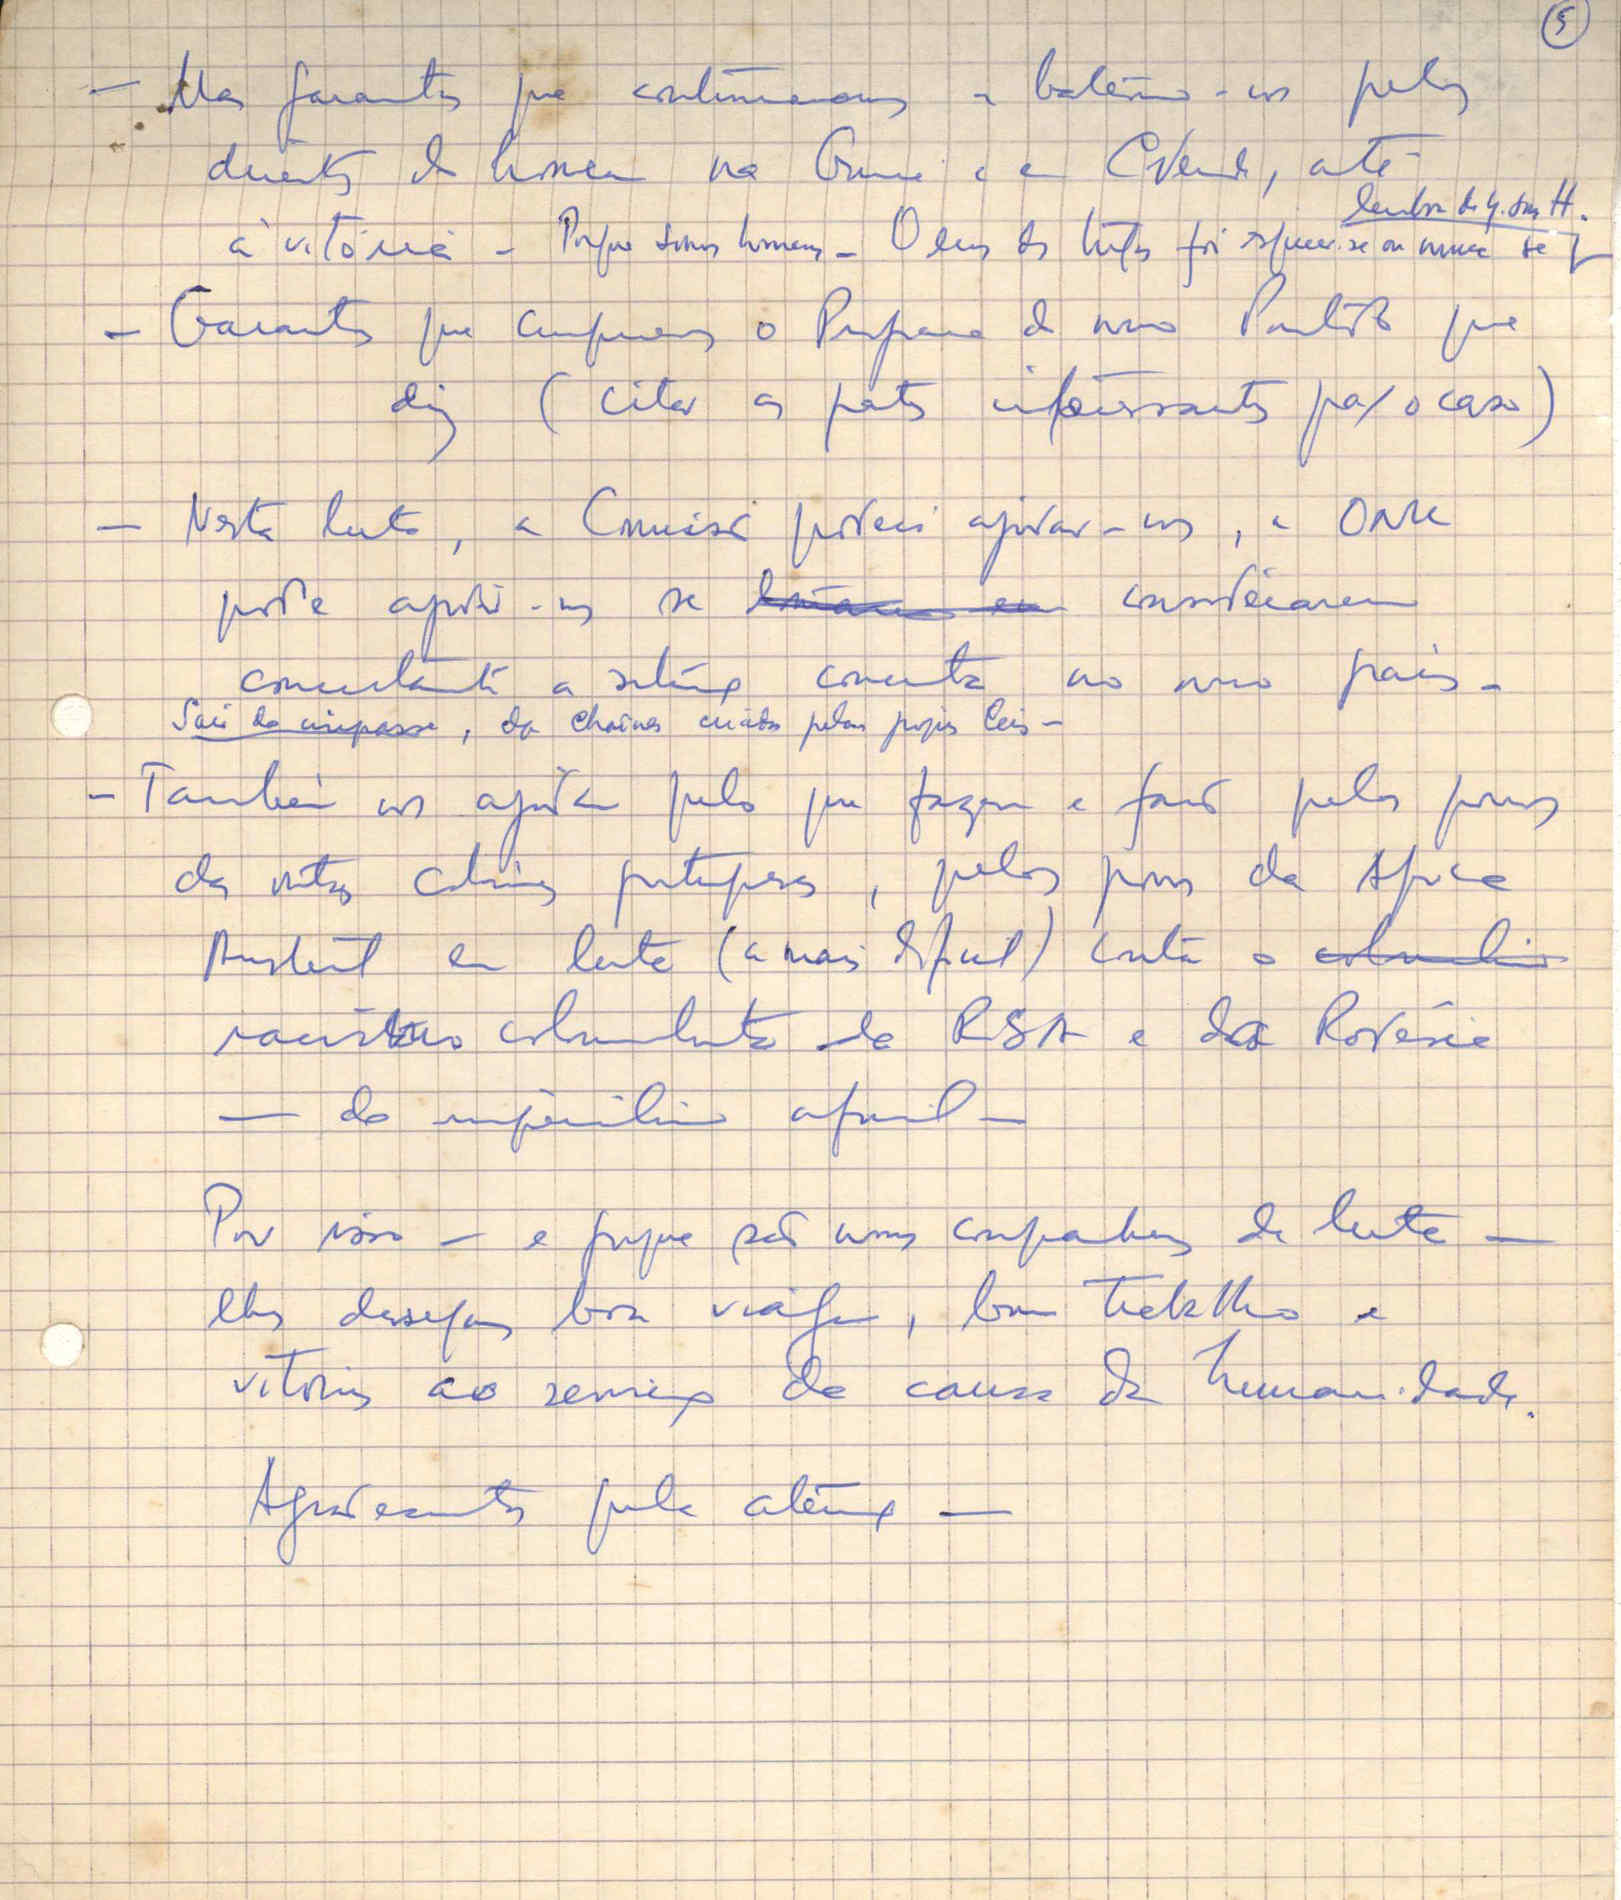 5
- Mas garantimos que continuaremos a bater-nos pelos
direitos do homem na Guiné e em C. Verde, até
à vitória - Porque somos homens - O erro dos tugas foi esquecer-se ou nunca se
lembrar de q. somos H.
- Garantimos que cumprimos o Programa do nosso Partido que
diz (citar as partes interessantes pa/ o caso)
- Nesta luta, a Comissão poderá ajudar-nos, a ONU
pode ajudar-nos se considerarem
concretamente a situação concreta no nosso país -
Sair do impasse, da chaînes criadas pelas próprias leis -
- Também nos ajudam pelo que fazem e farão pelos povos
das outras colónias portuguesas, pelos povos da Africa
Austral em luta (a mais difícil) contra o
racismo colonialista da RSA e da Rodésia
- do imperialismo afinal -
Por isso - e porque são nossos companheiros de luta -
lhes desejamos boa viagem, bom trabalho e
vitórias ao serviço da causa da humanidade.
Agradecimentos pela atenção -